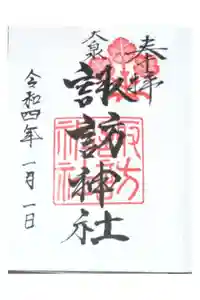 奉拝
大泉
諏訪神社
諏訪神社
令和四年一月一日